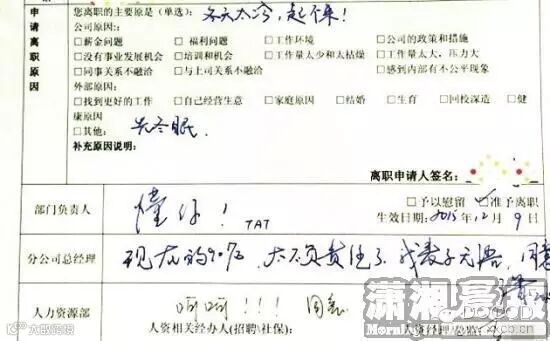 申请离职原因
您离职的主要原是(单选): 冬天太冷,起不来!
公司原因:
□薪金问题 □福利问题 □工作环境 □公司的政策和措施
□没有事业发展机会 □培训和机会 □工作量太少和太枯燥 □工作量太大,压力大
□同事关系不融洽 □与上司关系不融洽 □感到内部有不公平现象
外部原因:
□找到更好的工作 □自己经营生意 □家庭原因 □结婚 □生育 □回校深造 □健
康原因
□其他: 去冬眠.
补充原因说明:
离职申请人签名:
部门负责人 懂你! TAT
□予以慰留 准予离职
生效日期: 2015 12月9日
分公司总经理 现在的90后,太不负责任了,我表示无语,同意
人力资源部 呵呵!!! 同意
人资相关经办人(招聘\社保): 人资经理\总监:
潇湘晨报
大蚁网络